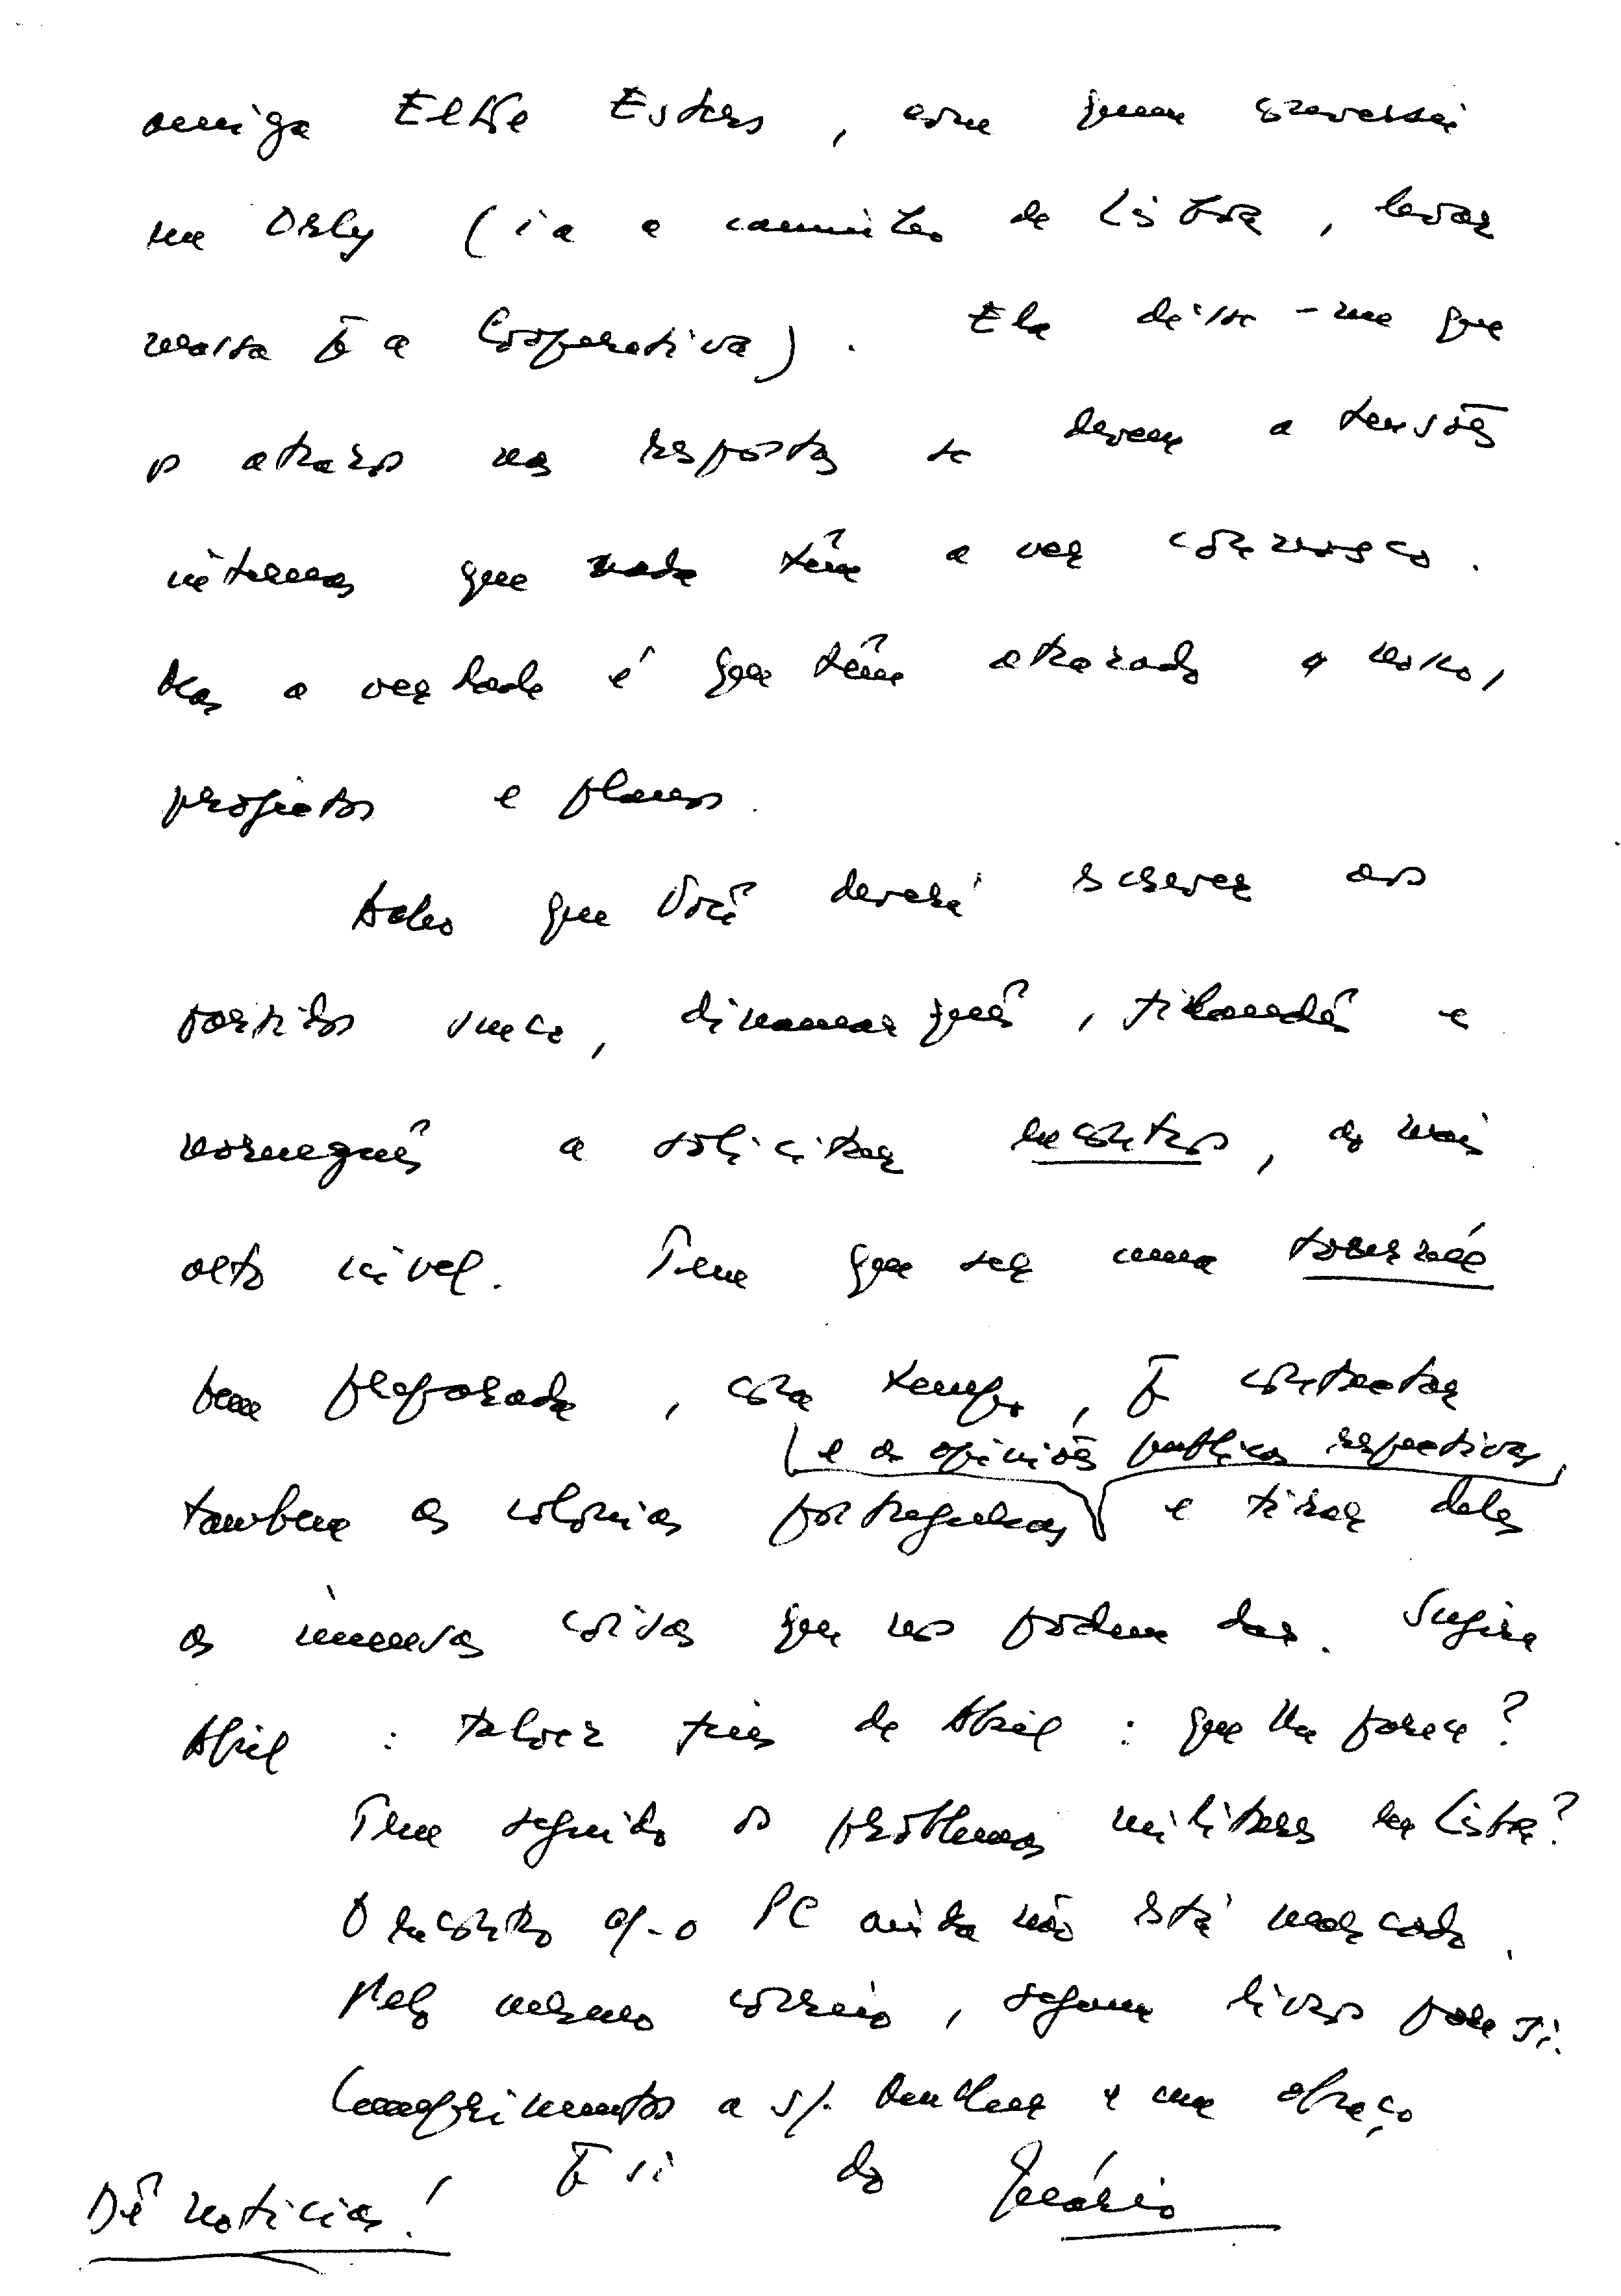 amiga Elke Esters, com quem conversei
em Orly (ia a caminho de Lisboa, levar
massa p̄ a Cooperativa). Ela disse-me que
o atraso nas respostas se devem a tensões
internas que nada têm a ver connosco.
Mas a verdade é que têm atrasado os nossos
projectos e planos.
Acho que Você deverá escrever aos
partidos sueco, dinamarquês, finlandês e
norueguês a solicitar encontros, ao mais
alto nível. Tem que ser uma tournée
bem preparada, com tempo, p̄ contactar
(e as opiniões publicas respectivas)
tambem as colonias portuguesas e tirar delas
as imensas coisas que nos podem dar. Sugira
Abril: talvez fins de Abril: que lhe parece?
Tem seguido os problemas militares em Lisboa?
O encontro c/-o PC ainda não está marcado.
Pelo mesmo correio, seguem livros para si.
Cumprimentos a s/. mulher e um abraço
p̄ si do Mário
Dê noticias!